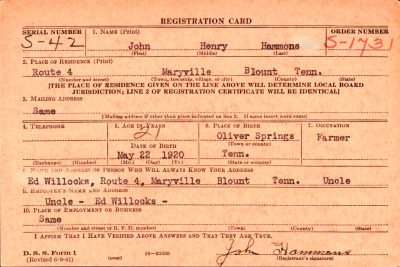 REGISTRATION CARD
SERIAL NUMBER 1. NAME (Print) ORDER NUMBER
S-42 John Henry Hammons S-1731
2. PLACE OF RESIDENCE (Print)
Route 4 Maryville Blount Tenn.
(Number and street) (Town, township, village, or city) (County) (State)
[THE PLACE OF RESIDENCE GIVEN ON THE LINE ABOVE WILL DETERMINE LOCAL BOARD
JURISDICTION; LINE 2 OF REGISTRATION CERTIFICATE WILL BE IDENTICAL]
3. MAILING ADDRESS
Same
(Mailing address if other than place indicated on line 2. If same insert word same)
4. TELEPHONE 5. AGE IN YEARS 6. PLACE OF BIRTH 7. OCCUPATION
21 Oliver Springs Farmer
DATE OF BIRTH (Town or county)
May 22 1920 Tenn.
(Exchange) (Number) (Mo.) (Day) (Yr.) (State or country)
8. NAME AND ADDRESS OF PERSON WHO WILL ALWAYS KNOW YOUR ADDRESS
Ed Willocks, Route 4, Maryville Blount Tenn. Uncle
9. EMPLOYER'S NAME AND ADDRESS
Uncle - Ed Willocks -
10. PLACE OF EMPLOYMENT OR BUSINESS
Same
(Number and street or R. F. D. number) (Town) (County) (State)
I AFFIRM THAT I HAVE VERIFIED ABOVE ANSWERS AND THAT THEY ARE TRUE.
D. S. S. Form 1 (over) John Hammons
(Revised 6-9-41) (Registrant's signature)